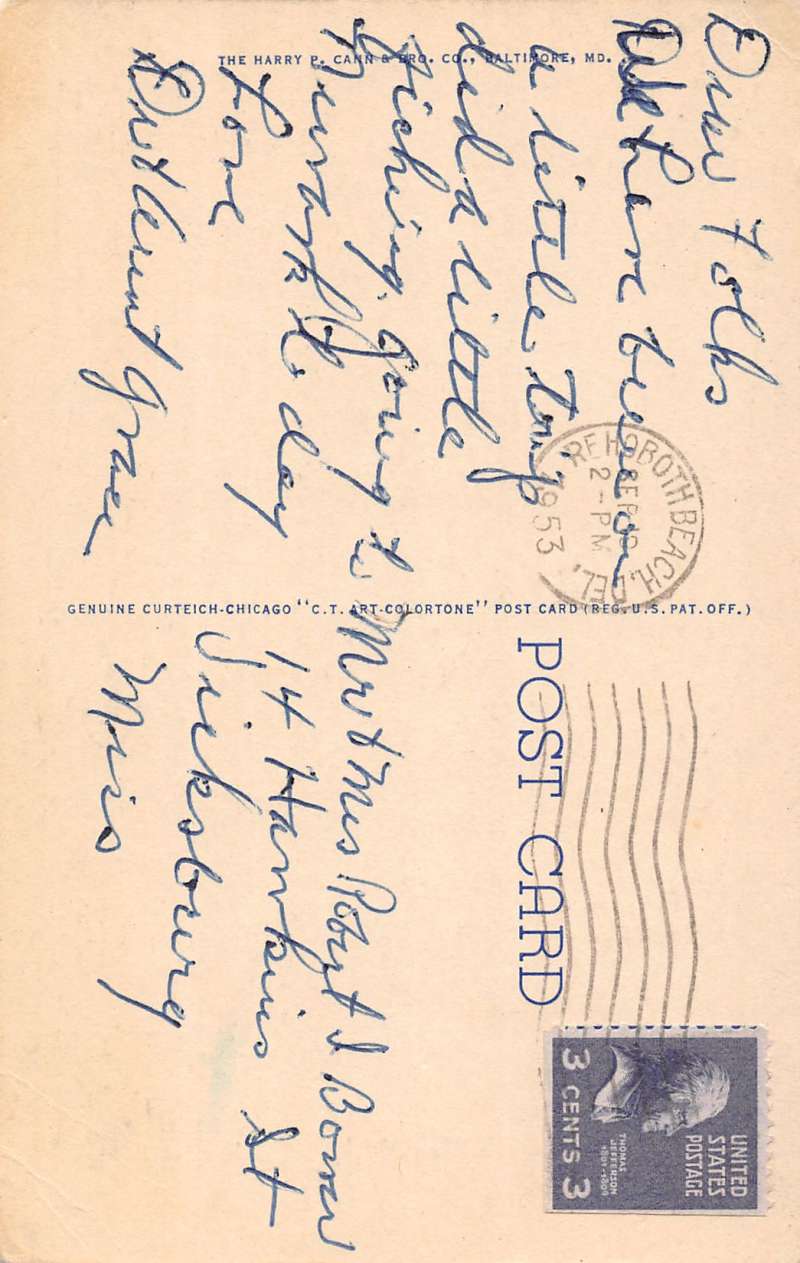 THE HARRY P. CANN & BRO. CO., BALTIMORE, MD.
Dear Folks
We have been on
a little trip
did a little
fishing. Going to
Newark to day
Love
Aunt Grace
REHOBOTH BEACH, DEL.
SEP
2-PM
1953
GENUINE CURTEICH-CHICAGO "C.T. ART-COLORTONE" POST CARD (REG. U.S. PAT. OFF.)
POST CARD
UNITED
STATES
POSTAGE
THOMAS
JEFFERSON
1801-1809
3 CENTS 3
Mr & Mrs Robert I Bowar
14 Hawkins St
Vicksburg
Miss